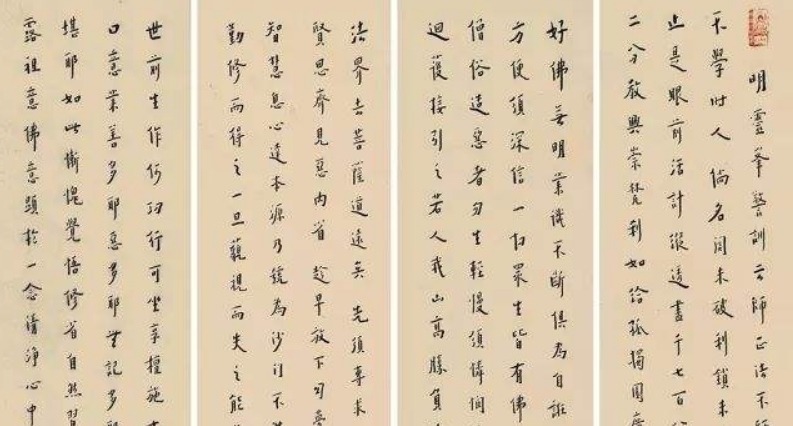 明靈峯警訓云師正法不
不學此人倘名間未破利鎖未
止是眼前活計縱透盡千七百
二分敎興崇梵刹如給孤獨園
好佛等明業識不斷俱為自誑
方便須深信一切眾生皆有佛
僧俗造惡者勿生輕慢須憐憫
迴護接引之若人我山高勝負
法界去菩薩道遠矣先須專求
賢思齊見惡內省趁早放下勿
智慧息心達本源乃號為沙門不
勤修而得之一旦藐視而失之能
世前生作何功行可坐享檀施
口意業善多耶惡多耶無記多耶
堪耶如此慚愧覺悟修省自然習
露祖意佛意顯於一念清淨心中